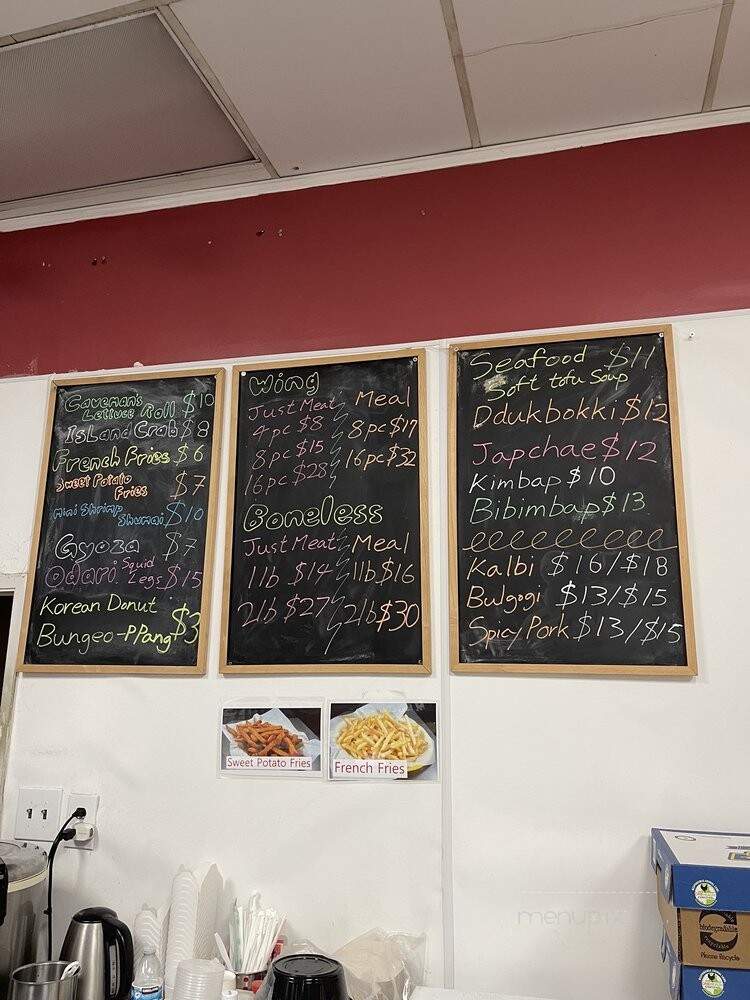 Caveman's
Lettuce Roll $10
Island Crab $8
French Fries $6
Sweet Potato
Fries $7
Mini Shrimp
Shumai $10
Gyoza $7
Odari Squid
Legs $15
Korean Donut
Bungeo-PPang $3
Wing
Just Meat Meal
4pc $8 8pc $17
8pc $15 16pc $32
16pc $28
Boneless
Just Meat Meal
1lb $14 1lb $16
2lb $27 2lb $30
Seafood $11
Soft tofu Soup
Ddukbokki $12
Japchae $12
Kimbap $10
Bibimbap $13
Kalbi $16/$18
Bulgogi $13/$15
Spicy Pork $13/$15
Sweet Potato Fries
French Fries
biodegradable
recyclable
Please Recycle
menupix